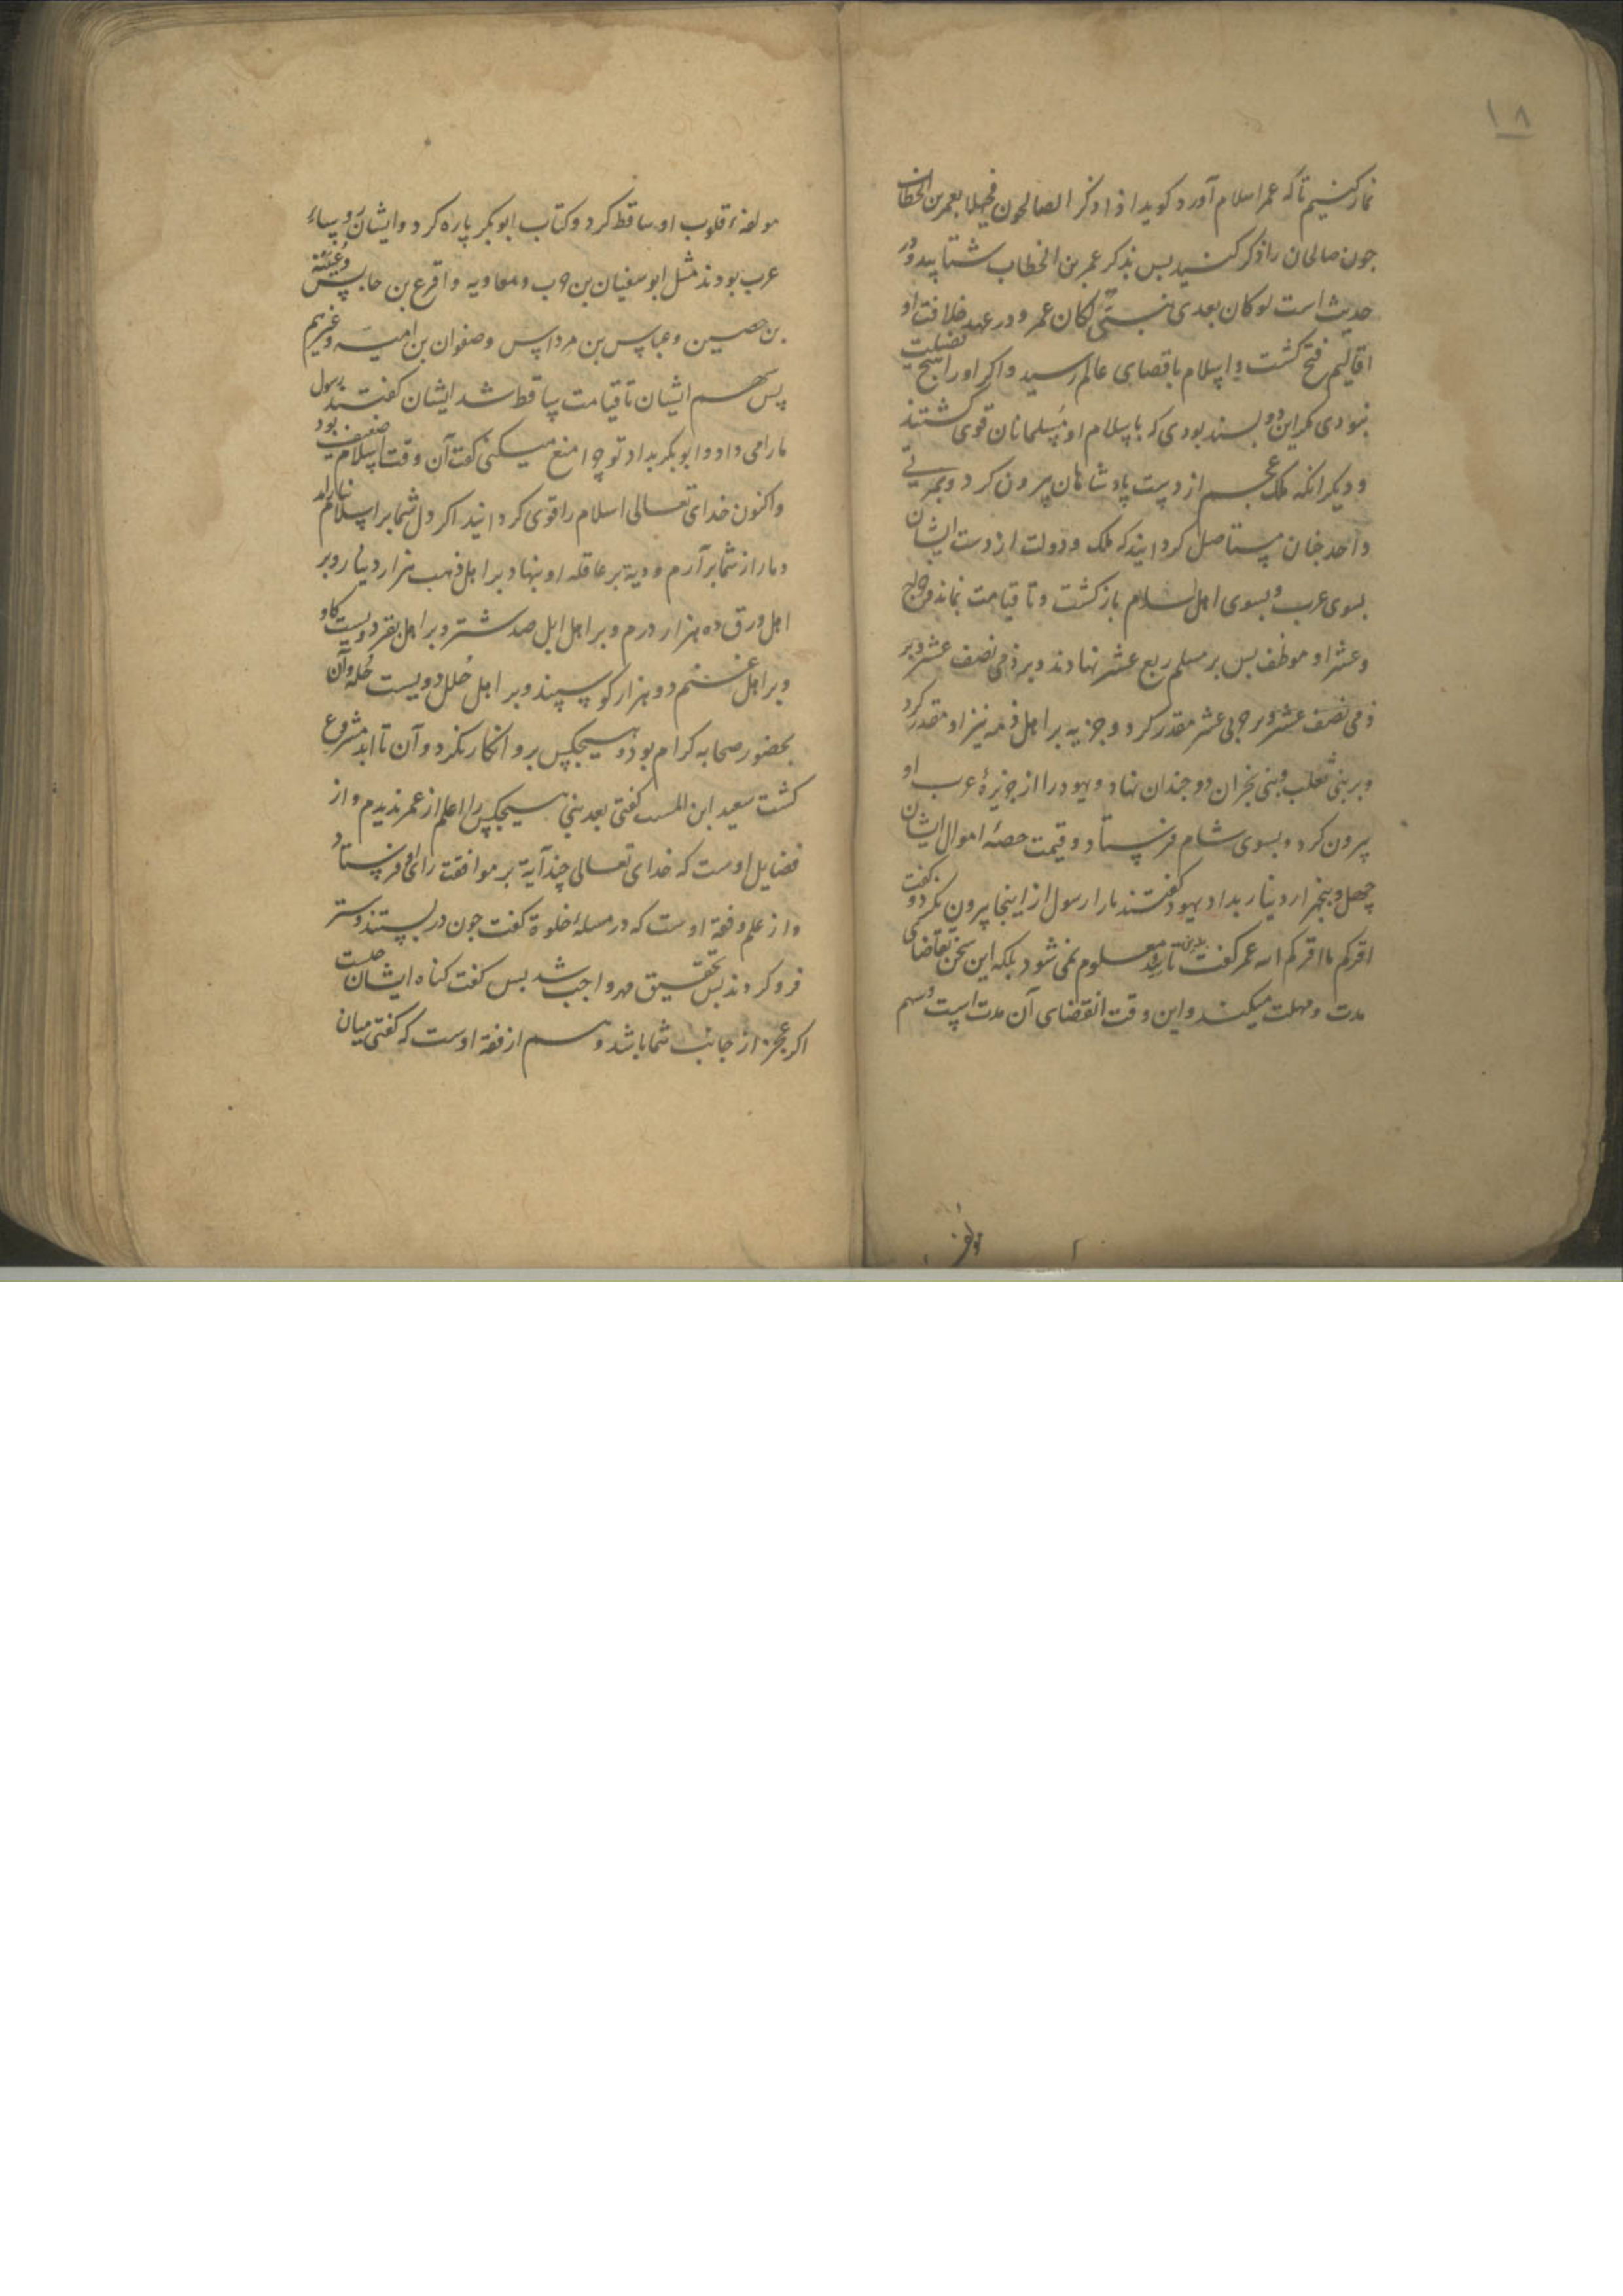 ۱۸
نماز کنیم تا که عمر اسلام آورد کوید اذا ذکر الصالحون فحیهلا بعمر بن الخطاب
جون صالحان را ذکر کنید بس بذکر عمر بن الخطاب شتابید و در
حدیث است لو کان بعدی نبی لکان عمر و در عهد خلافت او
اقالیم فتح کشت و اسلام باقصای عالم رسید و اکر او را هیج فضیلت
نبودی مکر این دو بسند بودی که باسلام او مسلمانان قوی کشتند
و دیکر انکه ملک عجم از دست پادشاهان بیرون کرد و
و احد خان مستاصل کردانید که ملک و دولت از دست ایشان
بسوی عرب و بسوی اهل اسلام باز کشت و تا قیامت بماند و خراج
و عشر او موظف بس بر مسلم ربع عشر نهادند و بر ذمی نصف عشر و بر
ذمی نصف عشر و بر حربی عشر مقدر کرد و جزیه بر اهل ذمه نیز او مقدر کرد
و بر بنی تغلب و بنی نجران دو جندان نهاد و یهود را از جزیرهٔ عرب او
بیرون کرد و بسوی شام فرستاد و قیمت حصهٔ اموال ایشان
چهل و پنجهزار دینار بداد یهود کفتند ما را رسول از اینجا بیرون نکرد و کفت
اقرکم ما اقرکم الله عمر کفت تا بید معلوم نمی شود بلکه این سخن تقاضای
مدت و مهلت میکند و این وقت انقضای آن مدت است و سهم
مولفه
مولفهٔ قلوب او ساقط کرد و کتاب ابوبکر پاره کرد و ایشان روساء
عرب بودند مثل ابو سفیان بن حرب و معاویه و اقرع بن حابس و عیینة
بن حصین و عباس بن مرداس و صفوان بن امیه و غیرهم
پس سهم ایشان تا قیامت ساقط شد ایشان کفتند رسول
ما را می داد و ابوبکر بداد تو چرا منع میکنی کفت آن وقت اسلام ضعیف بود
و اکنون خدای تعالی اسلام را قوی کردانید اکر دل شما بر اسلام نیارامد
دمار از شما برآرم و دیة بر عاقله او بنهاد بر اهل ذهب هزار دینار و بر
اهل ورق ده هزار درم و بر اهل ابل صد شتر و بر اهل بقر دویست کاو
و بر اهل غنم دو هزار کوسپند و بر اهل حلل دویست حله و آن
بحضور صحابه کرام بود و هیجکس برو انکار نکرد و آن تا ابد مشروع
کشت سعید ابن المسیب کفتی بعد نبی هیجکس را اعلم از عمر ندیدم و از
فضایل اوست که خدای تعالی چند آیة بر موافقت رای او فرستاد
و از علم و فقه اوست که در مسلهٔ خلوة کفت جون در بستند و ستر
فرو کردند بس بتحقیق مهر واجب شد بس کفت کناه ایشان چیست
اکر عجز از جانب شما باشد و هم از فقه اوست که کفتی میان